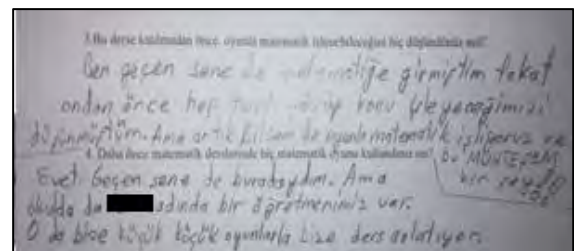 3.Bu derse katılmadan önce, oyunla matematik işlenebileceğini hiç düşündünüz mü?
Ben geçen sene de matematiğe girmiştim fakat
ondan önce hep konu işleyeceğimizi
düşünmüştüm. Ama artık Bilsem de oyunla matematik işliyoruz ve
bu MUHTEŞEM
bir şey
4. Daha önce matematik derslerinde hiç matematik oyunu kullandınız mı?
Evet. Geçen sene de buradaydım. Ama
okulda da adında bir öğretmenimiz var.
O da bize küçük küçük oyunlarla bize ders anlatıyor.